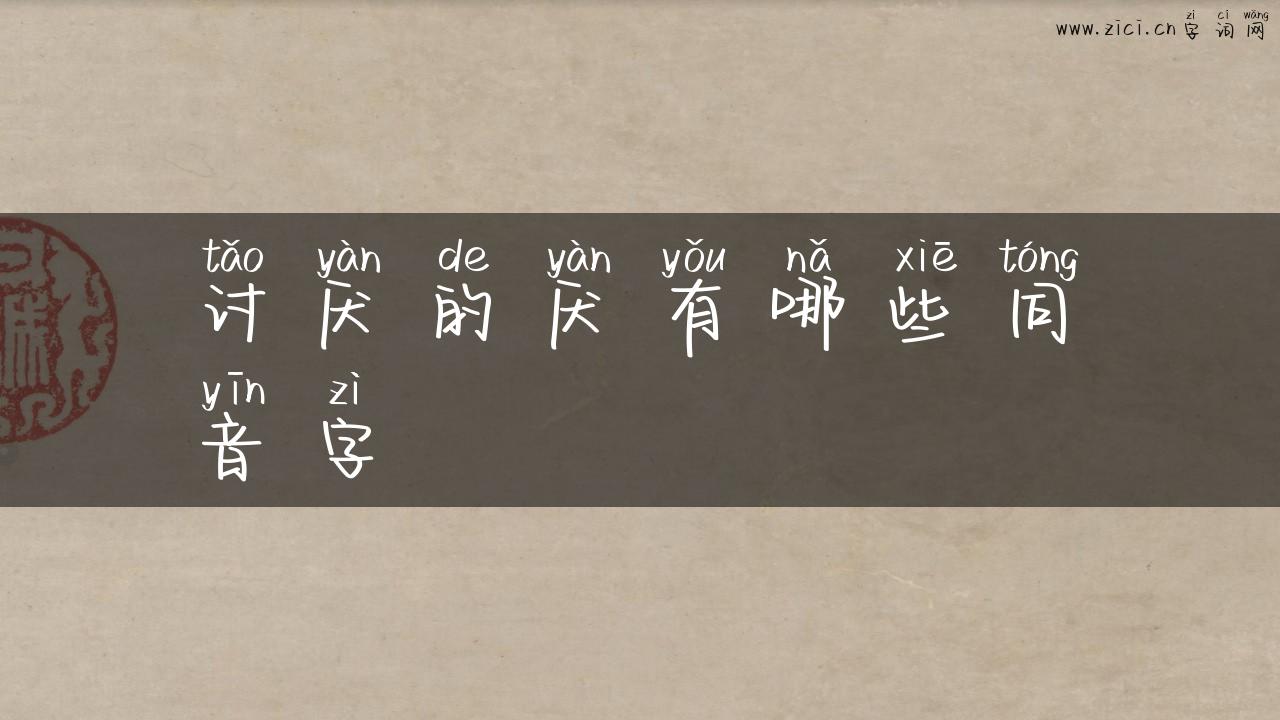 zì cí wǎng
www.zici.cn字词网
tǎo yàn de yàn yǒu nǎ xiē tóng
讨厌的厌有哪些同
yīn zì
音字